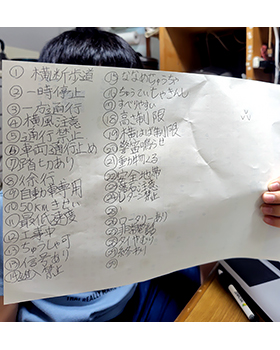 ① 横断歩道
② 一時停止
③ 一方通行
④ 横風注意
⑤ 通行禁
⑥ 車両通行止め
⑦ 踏切あり
⑧ 徐行
⑨ 自動車専用
⑩ 50kmきせい
⑪ 最低速度
⑫ 工事中
⑬ ちゅうしゃ可
⑭ 信号あり
進入禁止
ななめちゅうちゃ
ちゅうていちゃきんし
⑰ すべりやすい
⑱ 高さ制限
⑲ 横はば制限
⑳ 警笛鳴らせ
㉑ 動物
安全地帯
落石注意
禁止
ロータリーあり
非常電話